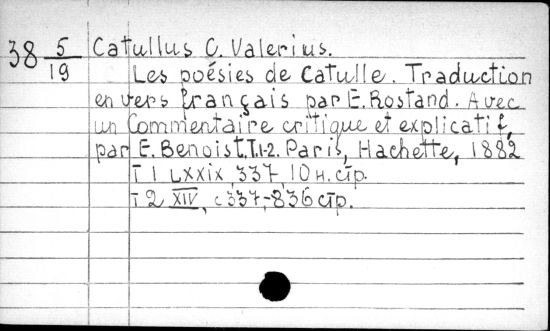 38 5/19 Catullus C. Valerius.
Les poésies de Catulle. Traduction
en vers français par E. Rostand. Avec
un Commentaire critique et explicatif,
par E. Benoist. T. 1-2. Paris, Hachette, 1882
T 1 LXXIX, 337, 10 н. стр.
T 2 XIV, с 337,-836 стр.